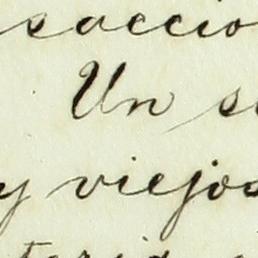 saccio
Un s
y viejos